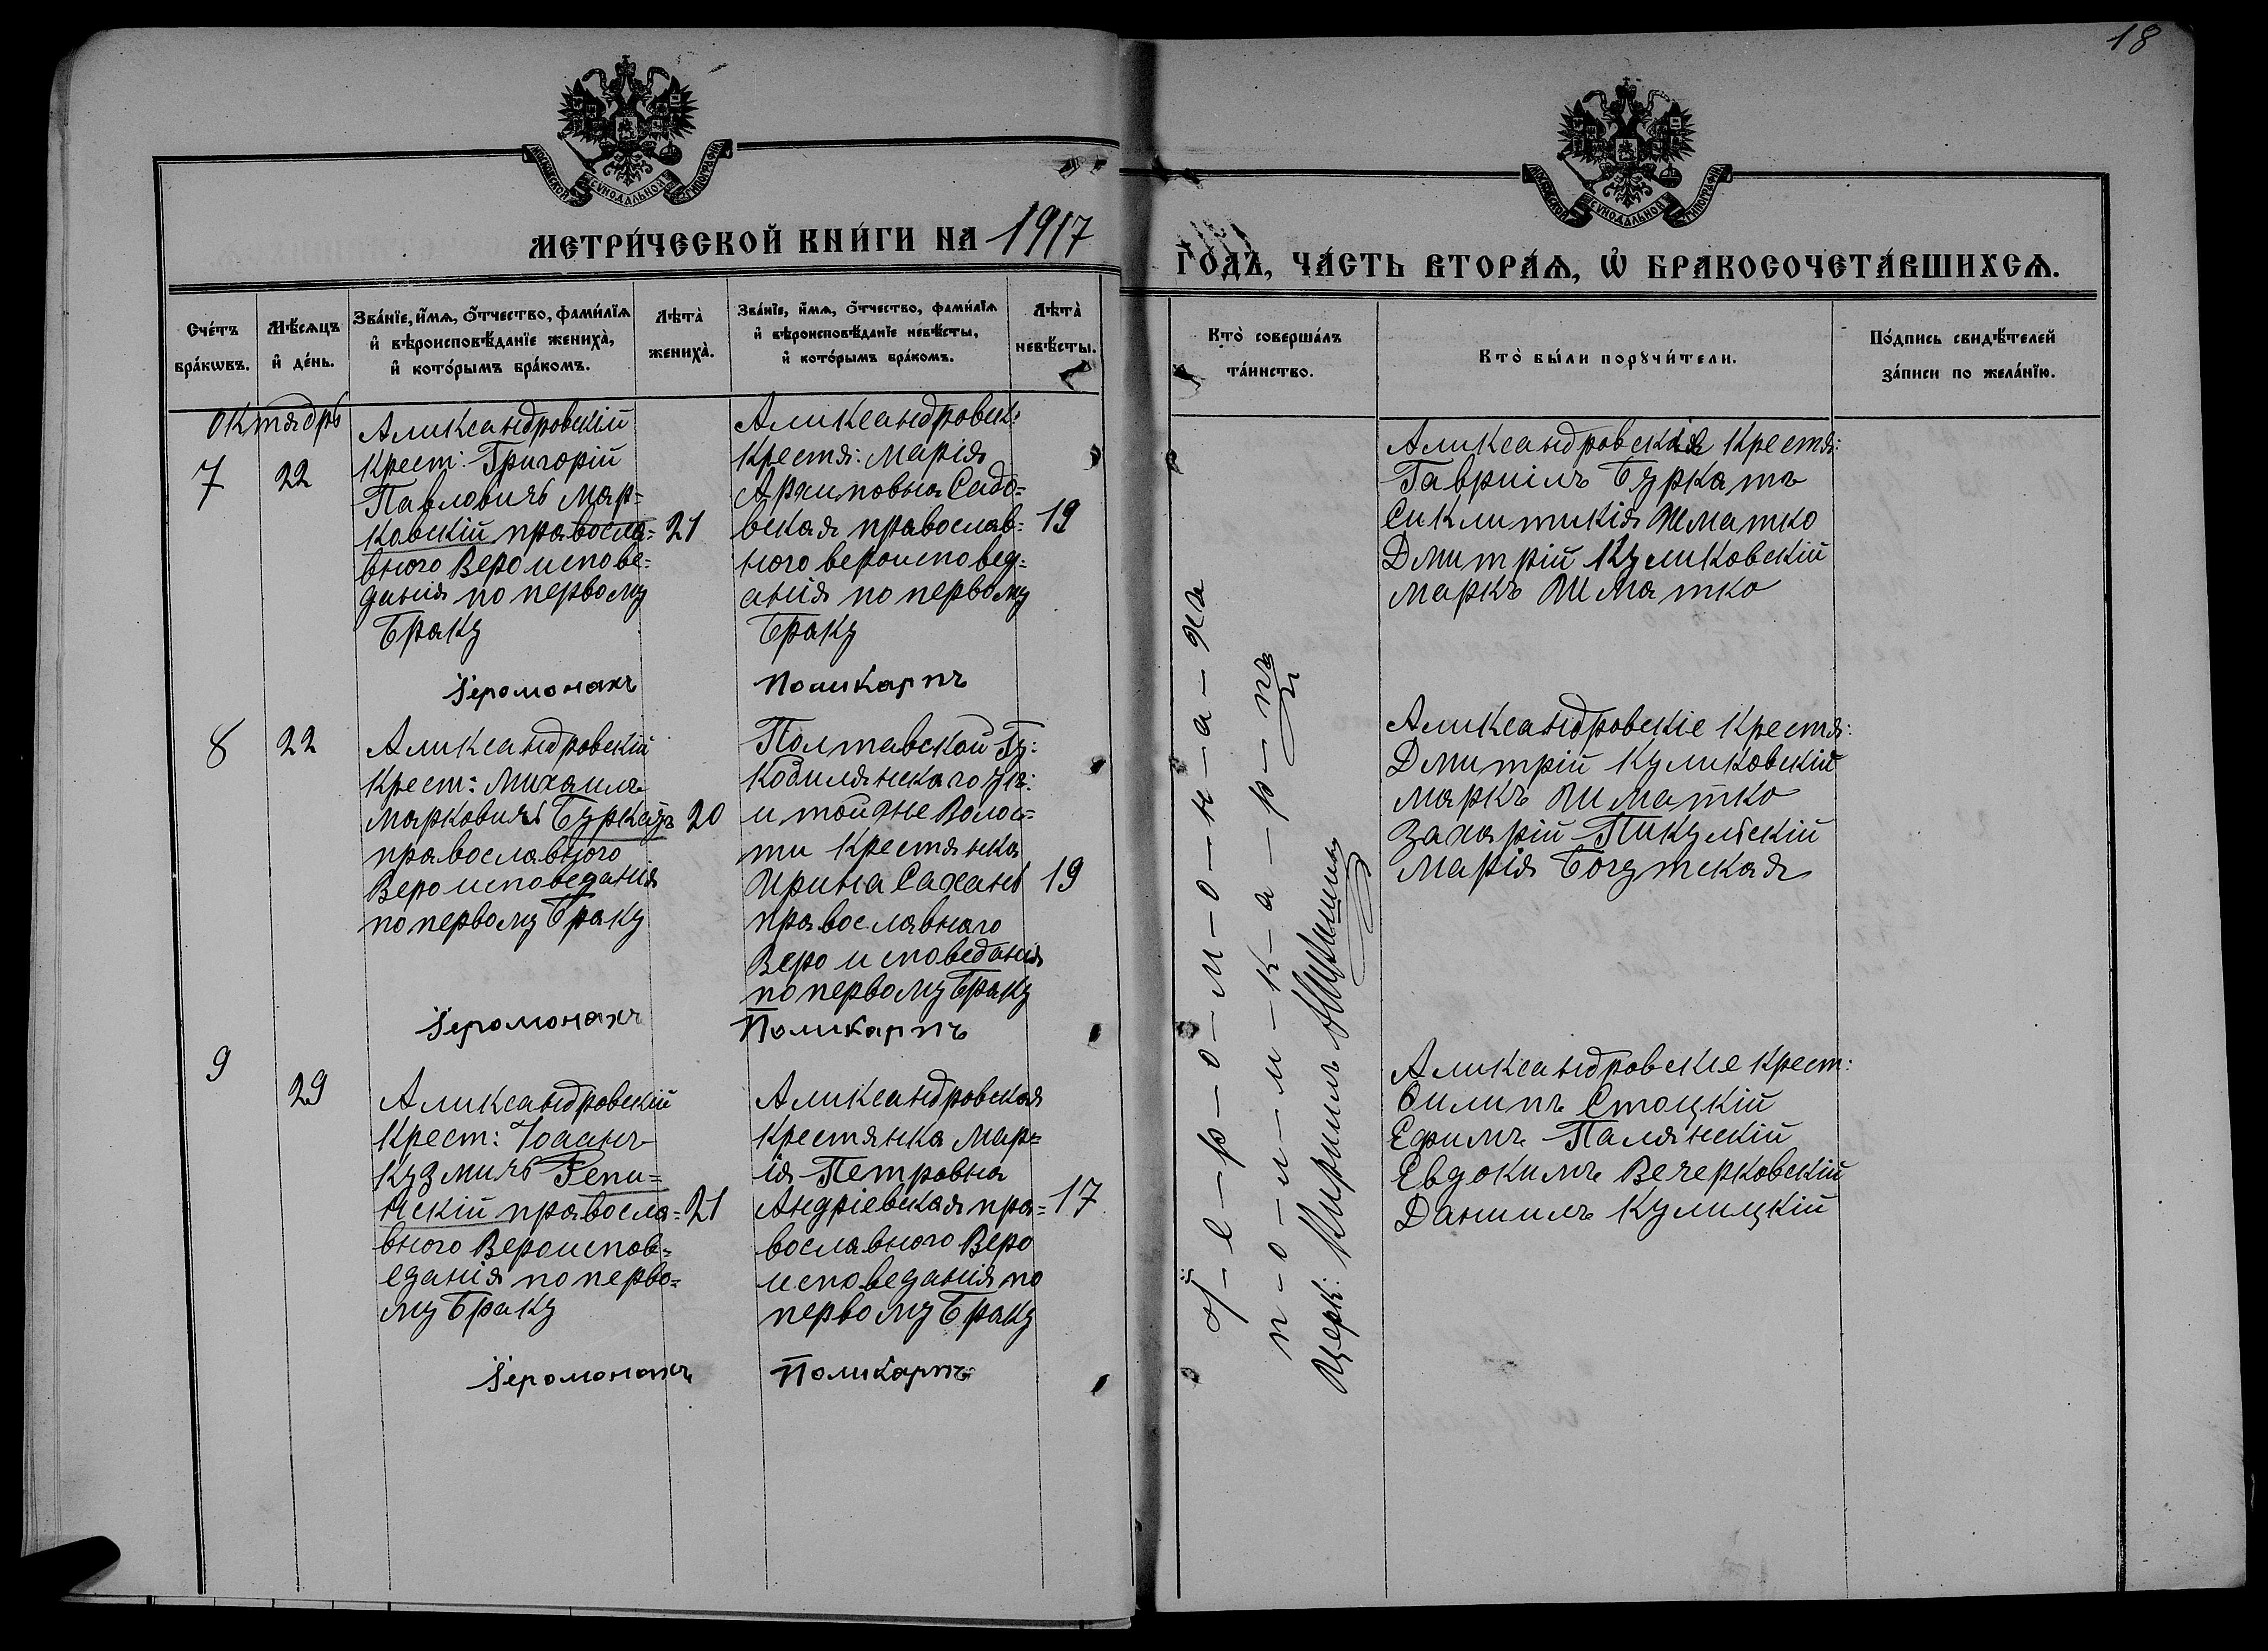 18
МОСКОВСКОЙ СѴНОДАЛЬНОЙ ТИПОГРАФІИ
МОСКОВСКОЙ СѴНОДАЛЬНОЙ ТИПОГРАФІИ
МЕТРИ́ЧЕСКОЙ КНИ́ГИ НА 1917
ГО́ДЪ, ЧА́СТЬ ВТОРА́Ѧ, Ѽ БРАКОСОЧЕТА́ВШИХСѦ.
Сче́тъ
бра́кѡвъ.
Мѣ́сѧцъ
и҆ де́нь.
Зва́нїе, и҆́мѧ, ѻ҆́тчество, фами́лїѧ
и҆ вѣроисповѣ́данїе жениха̀,
и҆ кото́рымъ бра́комъ.
Лѣта̀
жениха̀.
Зва́нїе, и҆́мѧ, ѻ҆́тчество, фами́лїѧ
и҆ вѣроисповѣ́данїе невѣ́сты,
и҆ кото́рымъ бра́комъ.
Лѣта̀
невѣ́сты.
Кто̀ соверша́лъ
та́инство.
Кто̀ бы́ли порꙋчи́тели.
По́дпись свидѣ́телей
за́писи по жела́нїю.
октябрь
7
22
Аликсандровскій
Крест: Григорій
Павловичь Мар=
ковскій правосла=
вного Вероиспове=
данія по первому
Браку
21
Аликсандровск:
Крестя: Марія
Архиповна Садо=
вская православ=
ного вероисповед=
анія по первому
Браку
19
Іеромонахъ Поликарпъ
Аликсандровскія Крестя:
Гавриілъ Буркатъ
Сиклитикія Шматко
Дмитрій Куликовскій
Маркъ Шматко
8
22
Аликсандровскій
Крест: Михаила
Марковичь Буркатъ
православного
Вероисповеданія
по первому Браку
20
Полтавской Гу:
Кобилянскаго Уѣ:
и тойдне Волос=
ти Крестянка
Ирина Сахань
православнаго
Вероисповеданія
по первому Браку
19
Іеромонахъ Поликарпъ
Аликсандровскіе Крестя:
Дмитрій Куликовскій
Маркъ Шматко
Захарій Пикульскій
Марія Богутская
9
29
Аликсандровскій
Крест: Іоаанъ
Кузмичь Репи=
нскій правосла=
вного Вероиспов=
еданія по перво=
му Браку
21
Аликсандровская
Крестянка Мар=
ія Петровна
Андріевская пра=
вославного Веро
исповеданія по
первому Браку
17
Іеромонахъ Поликарпъ
Аликсандровскіе Крест:
Филипъ Стоцкій
Ефимъ Палянскій
Евдокимъ Вечерковскій
Даниилъ Кулицкій
І-е-р-о-м-о-н-а-хъ
П-о-л-и-к-а-р-пъ
Церк: Кирилъ